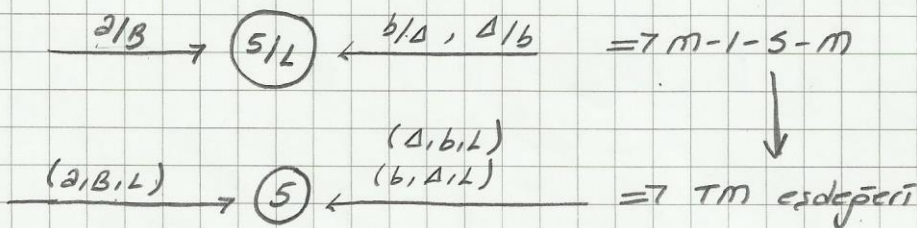 a/B → 5/L ← b/Δ , Δ/b => M-1-S-M
(Δ,b,L)
(a,B,L) → 5 ← (b,Δ,L) => TM eşdeğeri